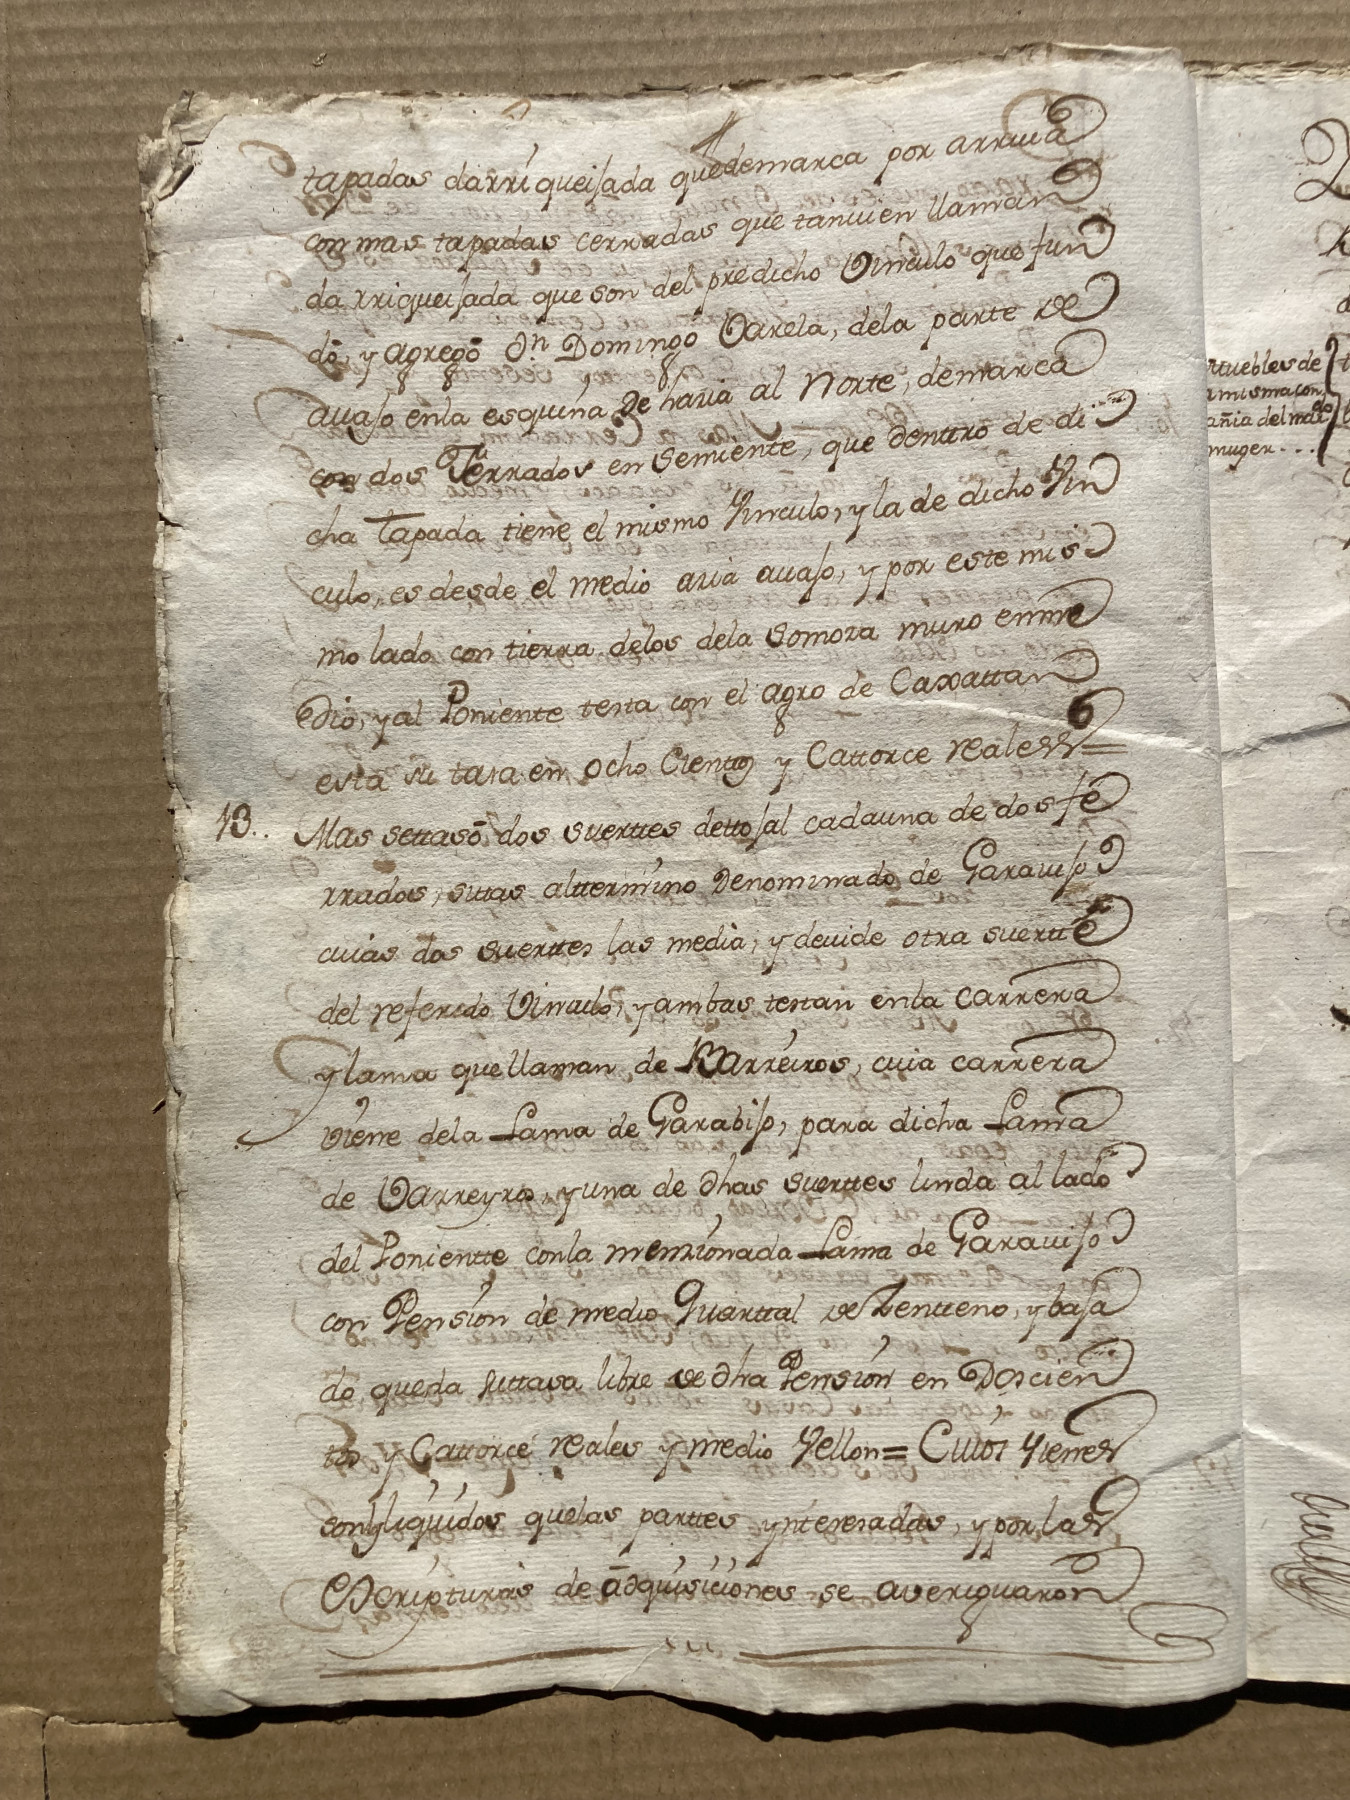 tapadas darriqueijada quedemarca por arriua
con mas tapadas cerradas que tanuien llaman
darriqueijada que son del predicho Vinculo que fun
dó, y agregó Dn Domingo Varela, dela parte de
auajo enla esquina de havia al Norte, demarca
con dos Ferrados en semiente, que denttro de di
cha Tapada tiene el mismo Vinculo, y la de dicho Vin
culo, es desde el medio avia auajo, y por este mis
mo lado con tierra delos dela Somoza muro enme
dio, y al Poniente testa con el agro de Caxattan
esta su tasa en ocho Cienttos y Cattorce reales =
13.. Mas settasó dos suerttes dettojal cadauna de dos fe
rrados, sittas alttermino denominado de Garauijo
cuias dos suerttes las media, y deuide otra suertte
del referido Vinculo, y ambas testan enla carrera
y lama que llaman de Barreiros, cuia carrera
viene dela Lama de Garabijo, para dicha Lama
de Varreyros, y una de dhas suerttes linda al lado
del Ponientte conla menzionada Lama de Garauijo
con Pension de medio Quarttal de Zentteno, y baja
do queda suttasa libre de dha Pension en Doscien
tos y Cattorce reales y medio Vellon = Cuios Vienes
son liquidos quelas parttes ynteresadas, y por las
Escripturas de adquisiciones se averiguaron
muebles de
misma com
añia del mar
muger...